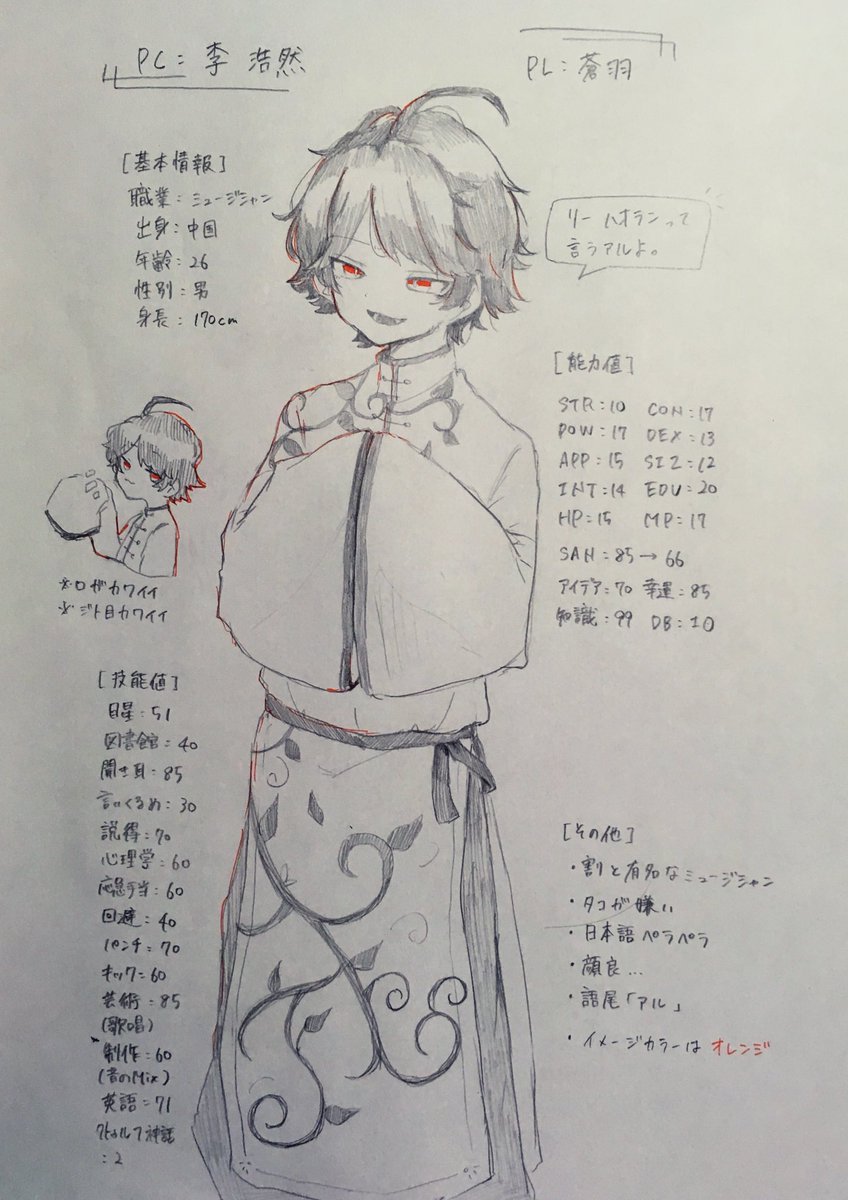 PC: 李 浩然
PL: 蒼羽
[基本情報]
職業: ミュージシャン
出身: 中国
年齢: 26
性別: 男
身長: 170cm
リー ハオランって
言うアルよ。
[能力値]
STR: 10 CON: 17
POW: 17 DEX: 13
APP: 15 SIZ: 12
INT: 14 EDU: 20
HP: 15 MP: 17
SAN: 85→66
アイデア: 70 幸運: 85
知識: 99 DB: 10
カワイイ
※ジト目カワイイ
[技能値]
目星: 51
図書館: 40
聞き耳: 85
言いくるめ: 30
説得: 70
心理学: 60
応急手当: 60
回避: 40
パンチ: 70
キック: 60
芸術: 85
(歌唱)
制作: 60
(音のMix)
英語: 71
クトゥルフ神話
: 2
[その他]
・割と有名なミュージシャン
・タコが嫌い
・日本語ペラペラ
・顔良…
・語尾「アル」
・イメージカラーは オレンジ